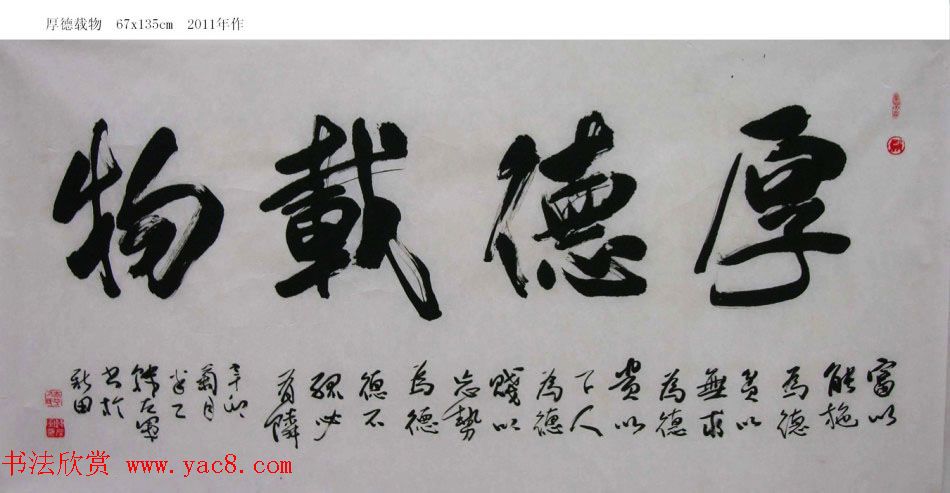 厚德载物 67x135cm 2011年作
厚德載物
富以
能施
為德
貧以
無求
為德
貴以
下人
為德
賤以
忘勢
為德
德不
孤必
有隣
辛卯
菊月
書於
新田
书法欣赏 www.yac8.com